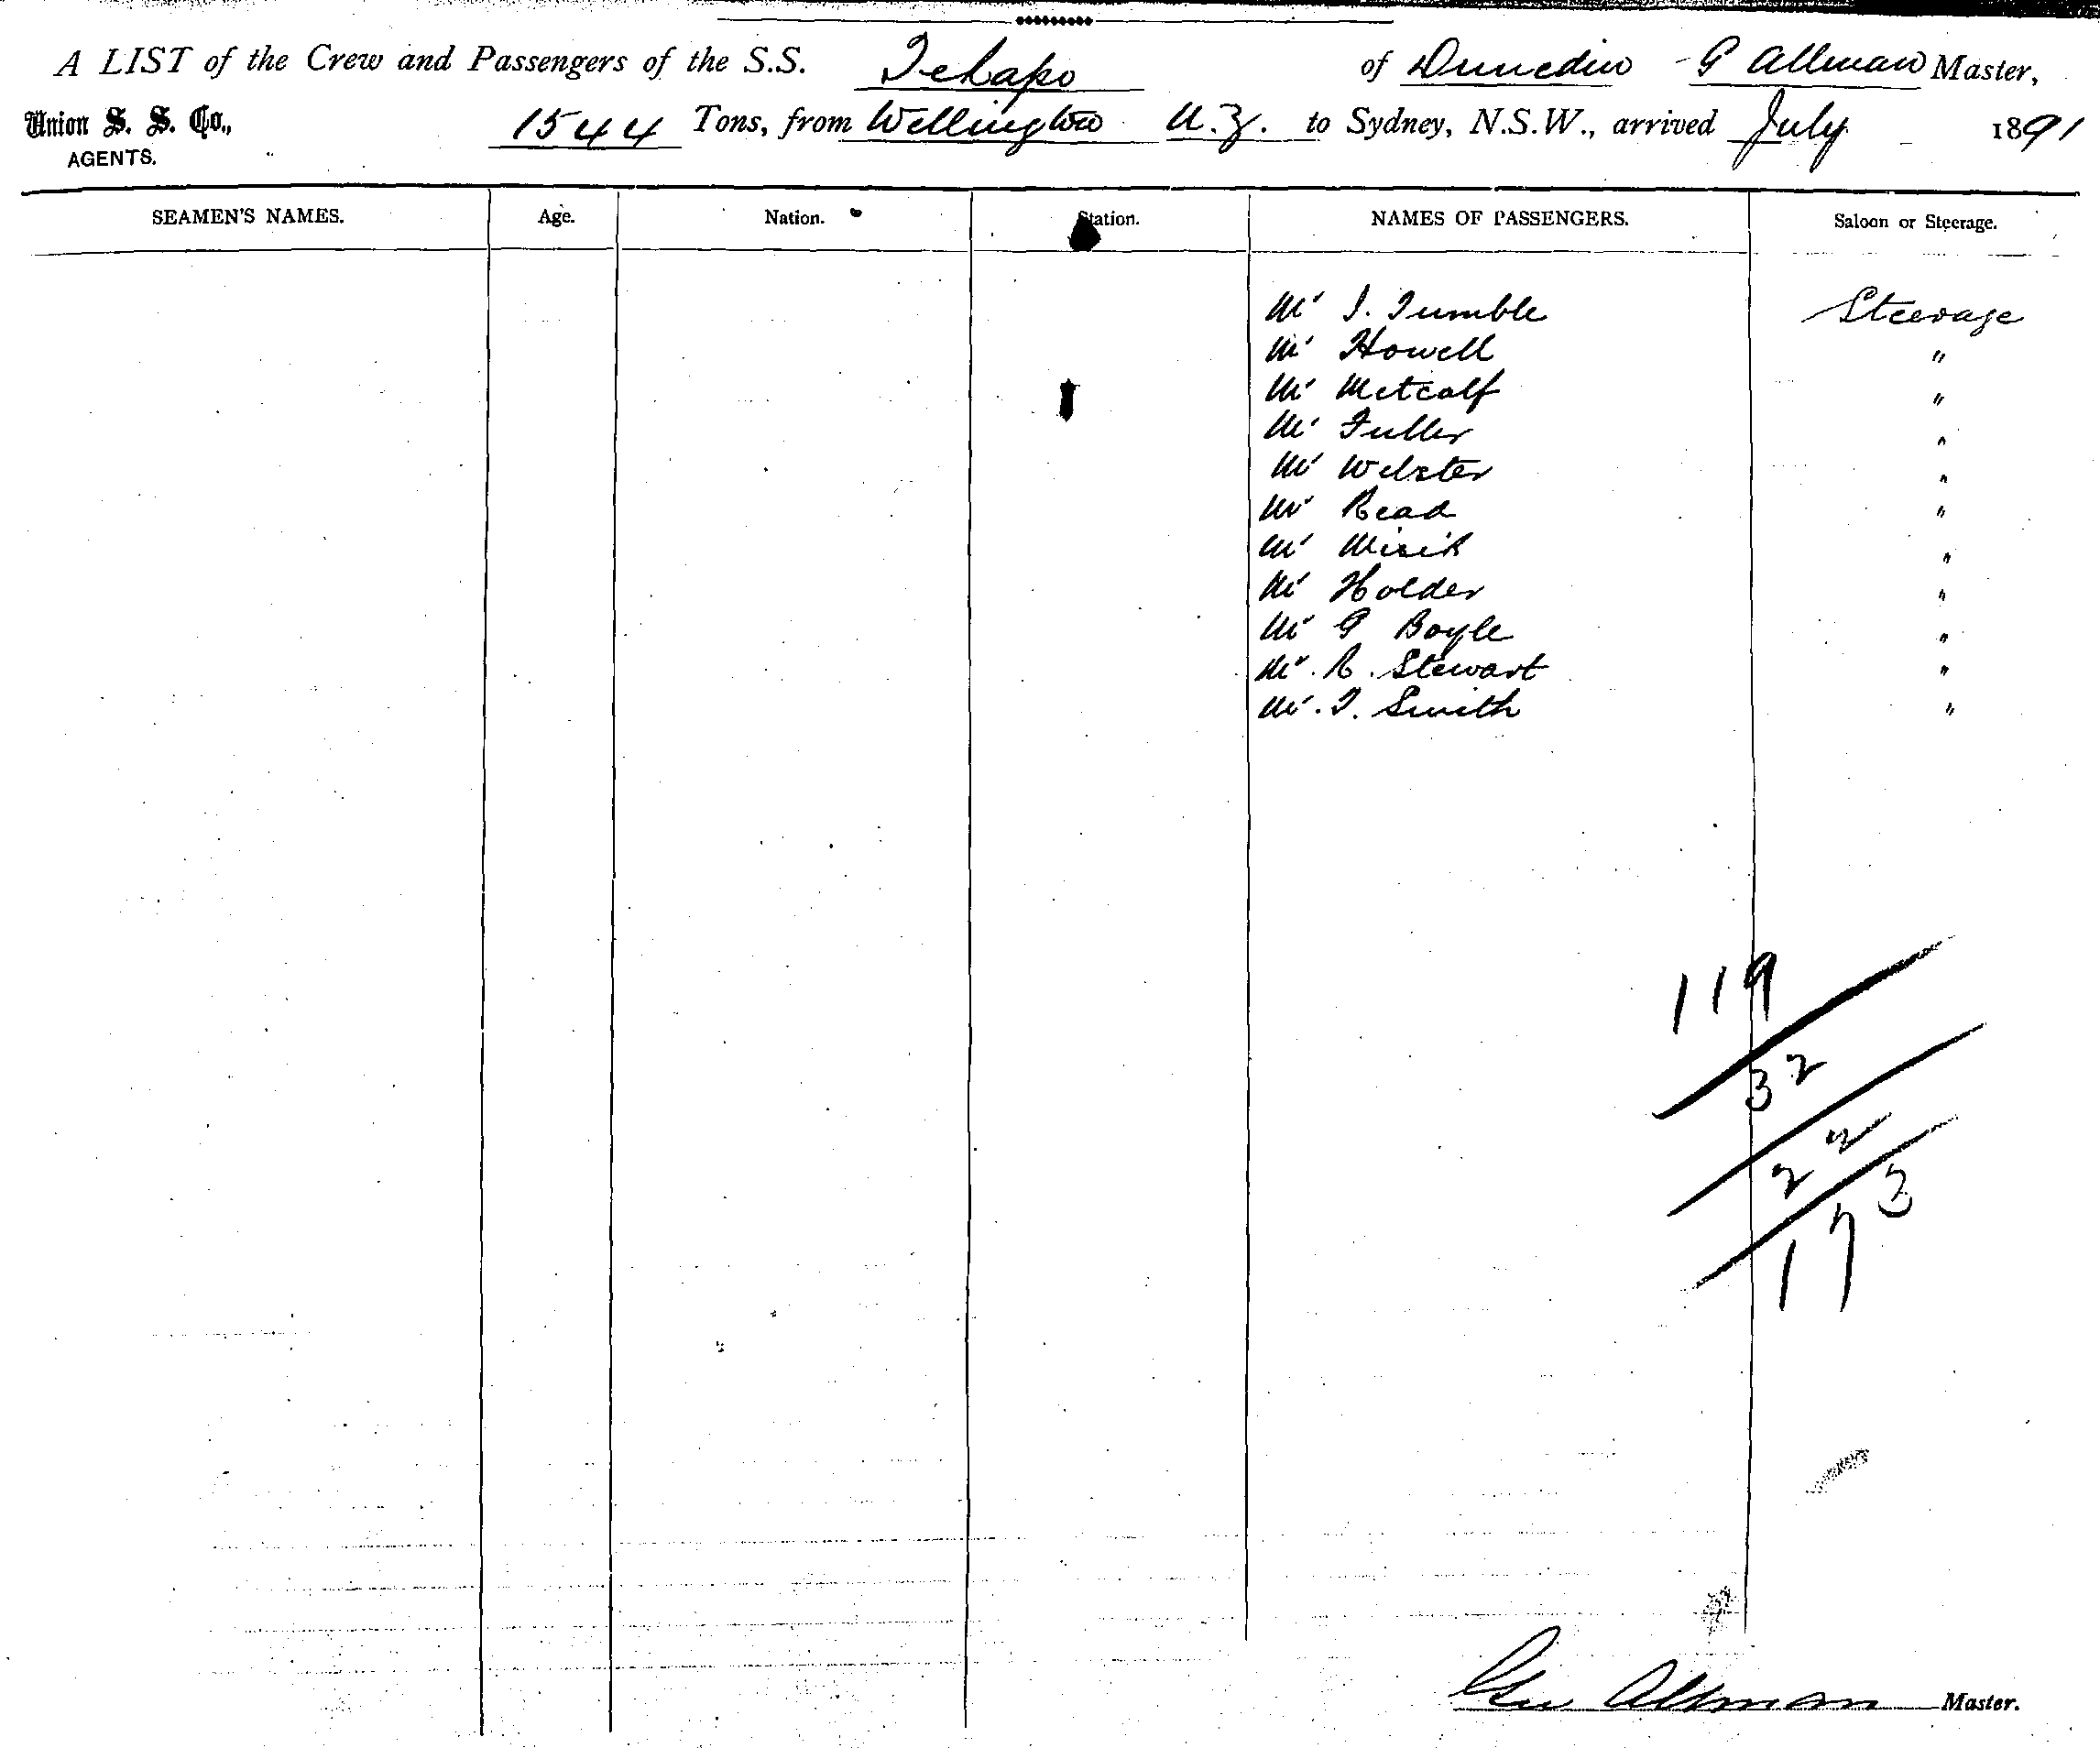 A LIST of the Crew and Passengers of the S.S. Tekapo of Dunedin G Allman Master,
Union S. S. Co., AGENTS. 1544 Tons, from Wellington N.Z. to Sydney, N.S.W., arrived July 1891
SEAMEN'S NAMES. Age. Nation. Station. NAMES OF PASSENGERS. Saloon or Steerage.
Mr J. Tumble Steerage
Mr Howell "
Mr Metcalf "
Mr Fuller "
Mr Webster "
Mr Read "
Mr "
Mr Holder "
Mr G Boyle "
Mr. R. Stewart "
Mr. T. Smith "
119
32
22
173
Geo Allman Master.